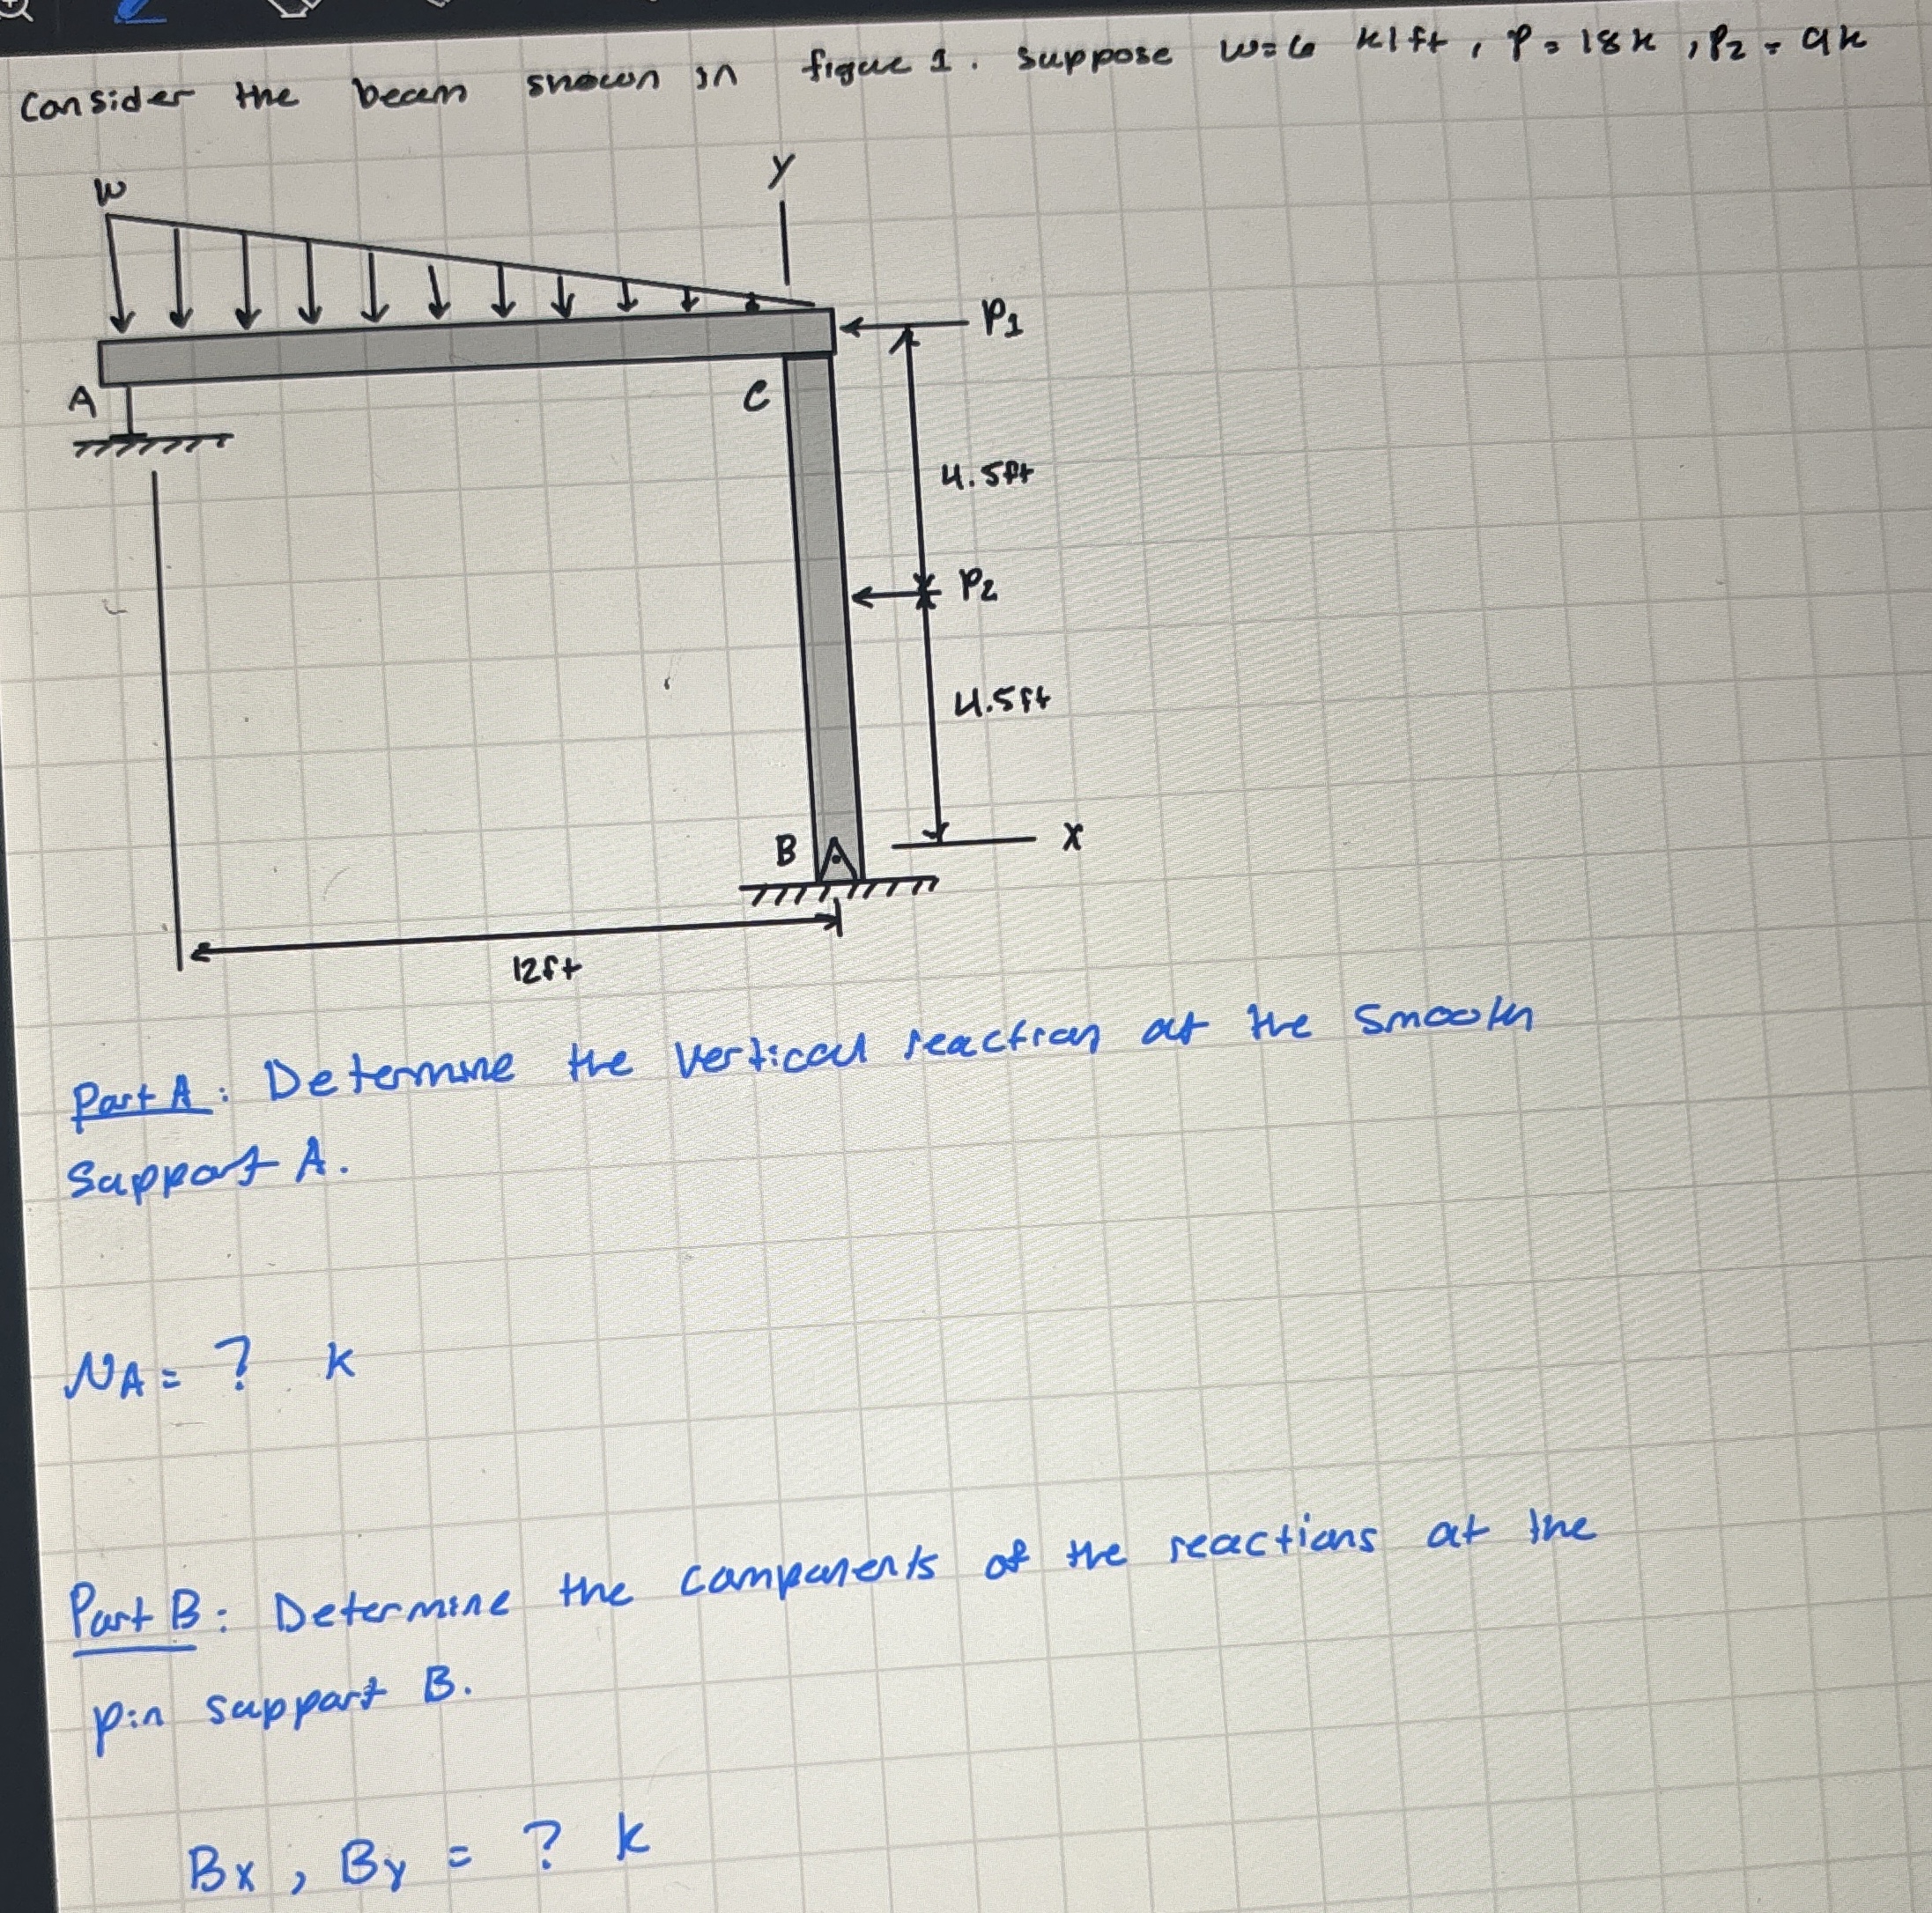 Consider the beam shown in figure 1. Suppose w=6 k/ft, P=18k, P2=9k
w
y
P1
A
C
4.5ft
P2
4.5ft
B
X
12ft
Part A: Determine the vertical reaction at the smooth
Support A.
NA = ? k
Part B: Determine the components of the reactions at the
pin support B.
Bx, By = ? k